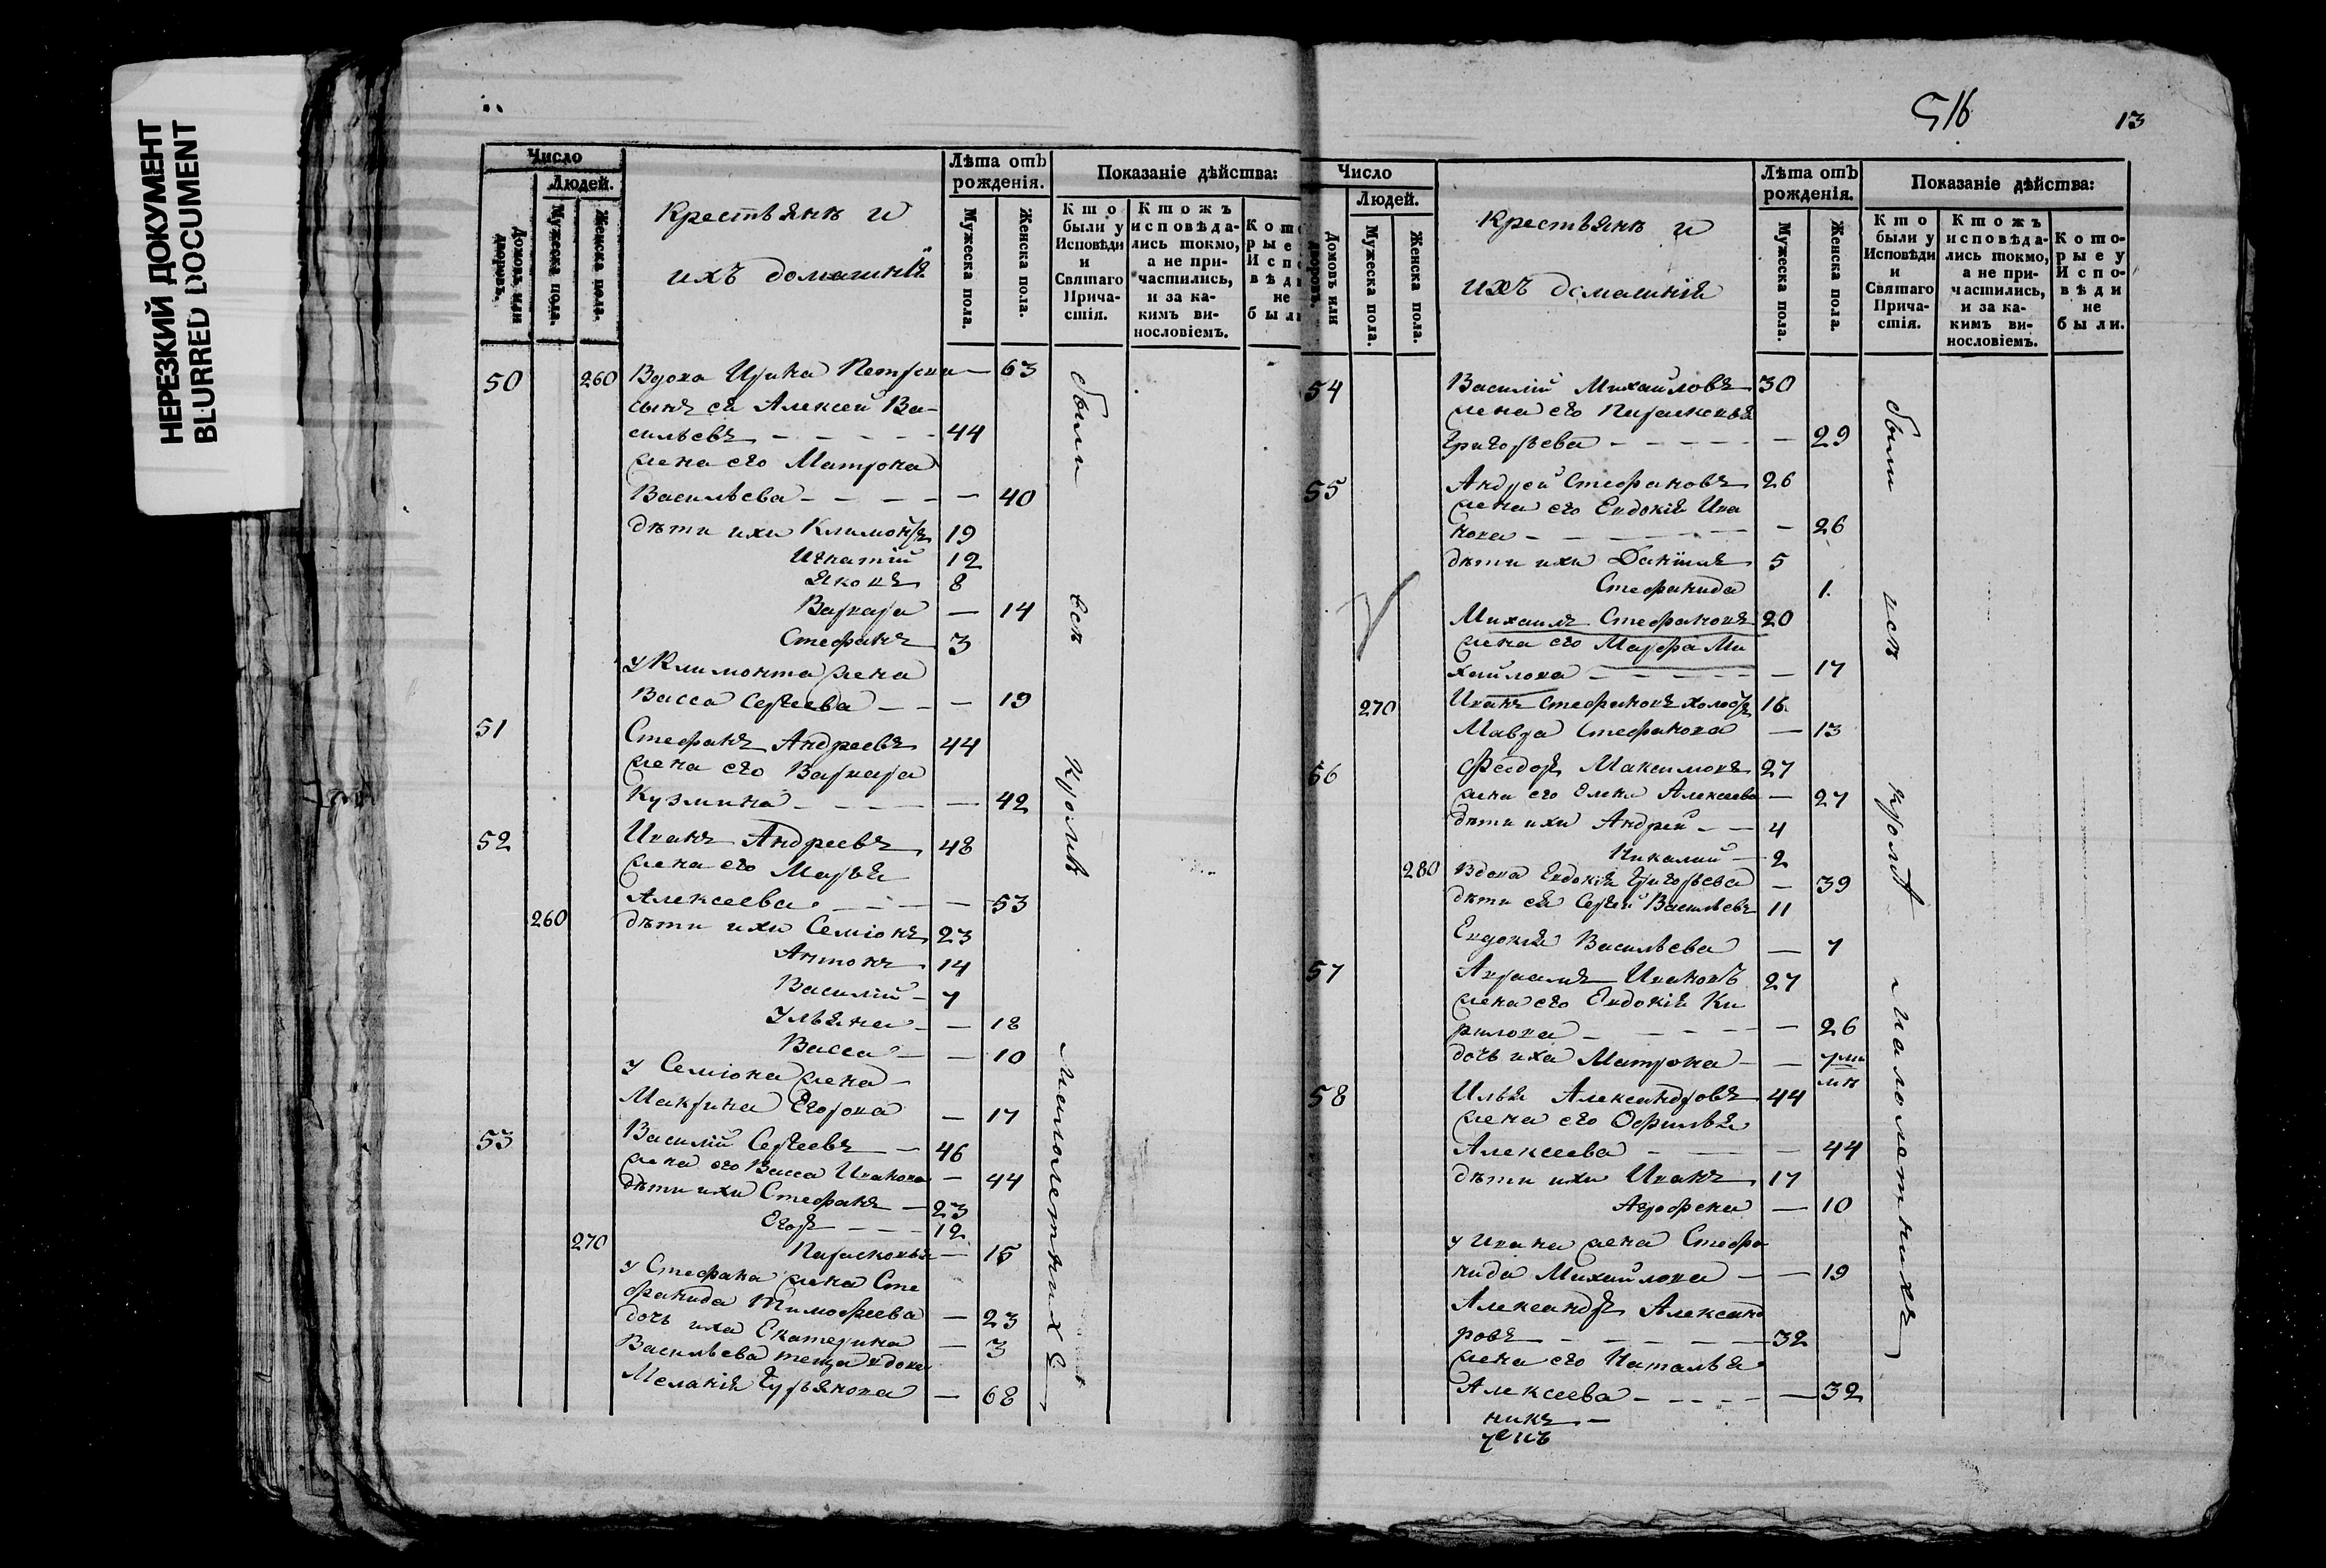 НЕРЕЗКИЙ ДОКУМЕНТ
BLURRED DOCUMENT
Число
Людей.
Домовъ или дворовъ.
Мужеска пола.
Женска пола.
Крестьянъ и
ихъ домашнія
Лѣта отъ рожденія.
Мужеска пола.
Женска пола.
Показаніе дѣйства:
Кто были у Исповѣди и Святаго Причастія.
Ктожъ исповѣдались токмо, а не причастились, и за какимъ винословіемъ.
50 260 Вдова Ирина Петрова — 63
сынъ ея Алексей Ва-
сильевъ - - - - - 44
жена его Матрона
Васильева - - - - — 40
дѣти ихъ Климонтъ 19
Игнатій 12
Яковъ 8
Варвара — 14
Стефанъ 3
у Климонта жена
Васса Сергѣева - - — 19
51 Стефанъ Андреевъ 44
жена его Варвара
Кузмина - - - — 42
52 Иванъ Андреевъ 48
жена его Марья
Алексеева - - - — 53
260 дѣти ихъ Семіонъ 23
Антонъ 14
Василій - 7
Ульяна - — 18
Васса - — 10
у Семіона жена -
Макрина Егорова — 17
53 Василій Сергѣевъ — 46
жена его Васса Иванова — 44
дѣти ихъ Стефанъ — 23
Егоръ - - - 12
270 Парасковья — 15
у Стефана жена Сте
фанида Тимофеева — 23
дочь ихъ Екатерина — 3
Васильева теща вдова
Меланія Гурьянова — 68
были
всѣ
кромѣ
малолетнихъ
516
13
Число
Людей.
Домовъ или дворовъ.
Мужеска пола.
Женска пола.
Крестьянъ и
ихъ домашнія
Лѣта отъ рожденія.
Мужеска пола.
Женска пола.
Показаніе дѣйства:
Кто были у Исповѣди и Святаго Причастія.
Ктожъ исповѣдались токмо, а не причастились, и за какимъ винословіемъ.
Которые у Исповѣди не были.
54 Василій Михайловъ 30
жена его Парасковья
Григорьева - - - - — 29
55 Андрей Стефановъ 26
жена его Евдокія Ива
нова - - - — 26
дѣти ихъ Даніилъ 5
Стефанида 1
Михаилъ Стефановъ 20
жена его Марфа Ми
хайлова - - - - — 17
270 Иванъ Стефановъ холостъ 16
Мавра Стефанова — 13
56 Феодоръ Максимовъ 27
жена его Олена Алексеева — 27
дѣти ихъ Андрей - — 4
Николай — 2
280 Вдова Евдокія Григорьева — 39
дѣти ея Сергѣй Васильевъ 11
Евдокія Васильева — 7
57 Авраамъ Ивановъ 27
жена его Евдокія Ки
рилова - - - - — 26
дочь ихъ Матрона - —
58 Илья Александровъ 44
жена его Офимья
Алексеева - - — 44
дѣти ихъ Иванъ 17
Агрофена — 10
у Ивана жена Стефа
нида Михайлова — — 19
Александръ Александ
ровъ - - - - - 32
жена его Наталья
Алексеева - - - - — 32
никъ -
были
всѣ
кромѣ
малолетнихъ